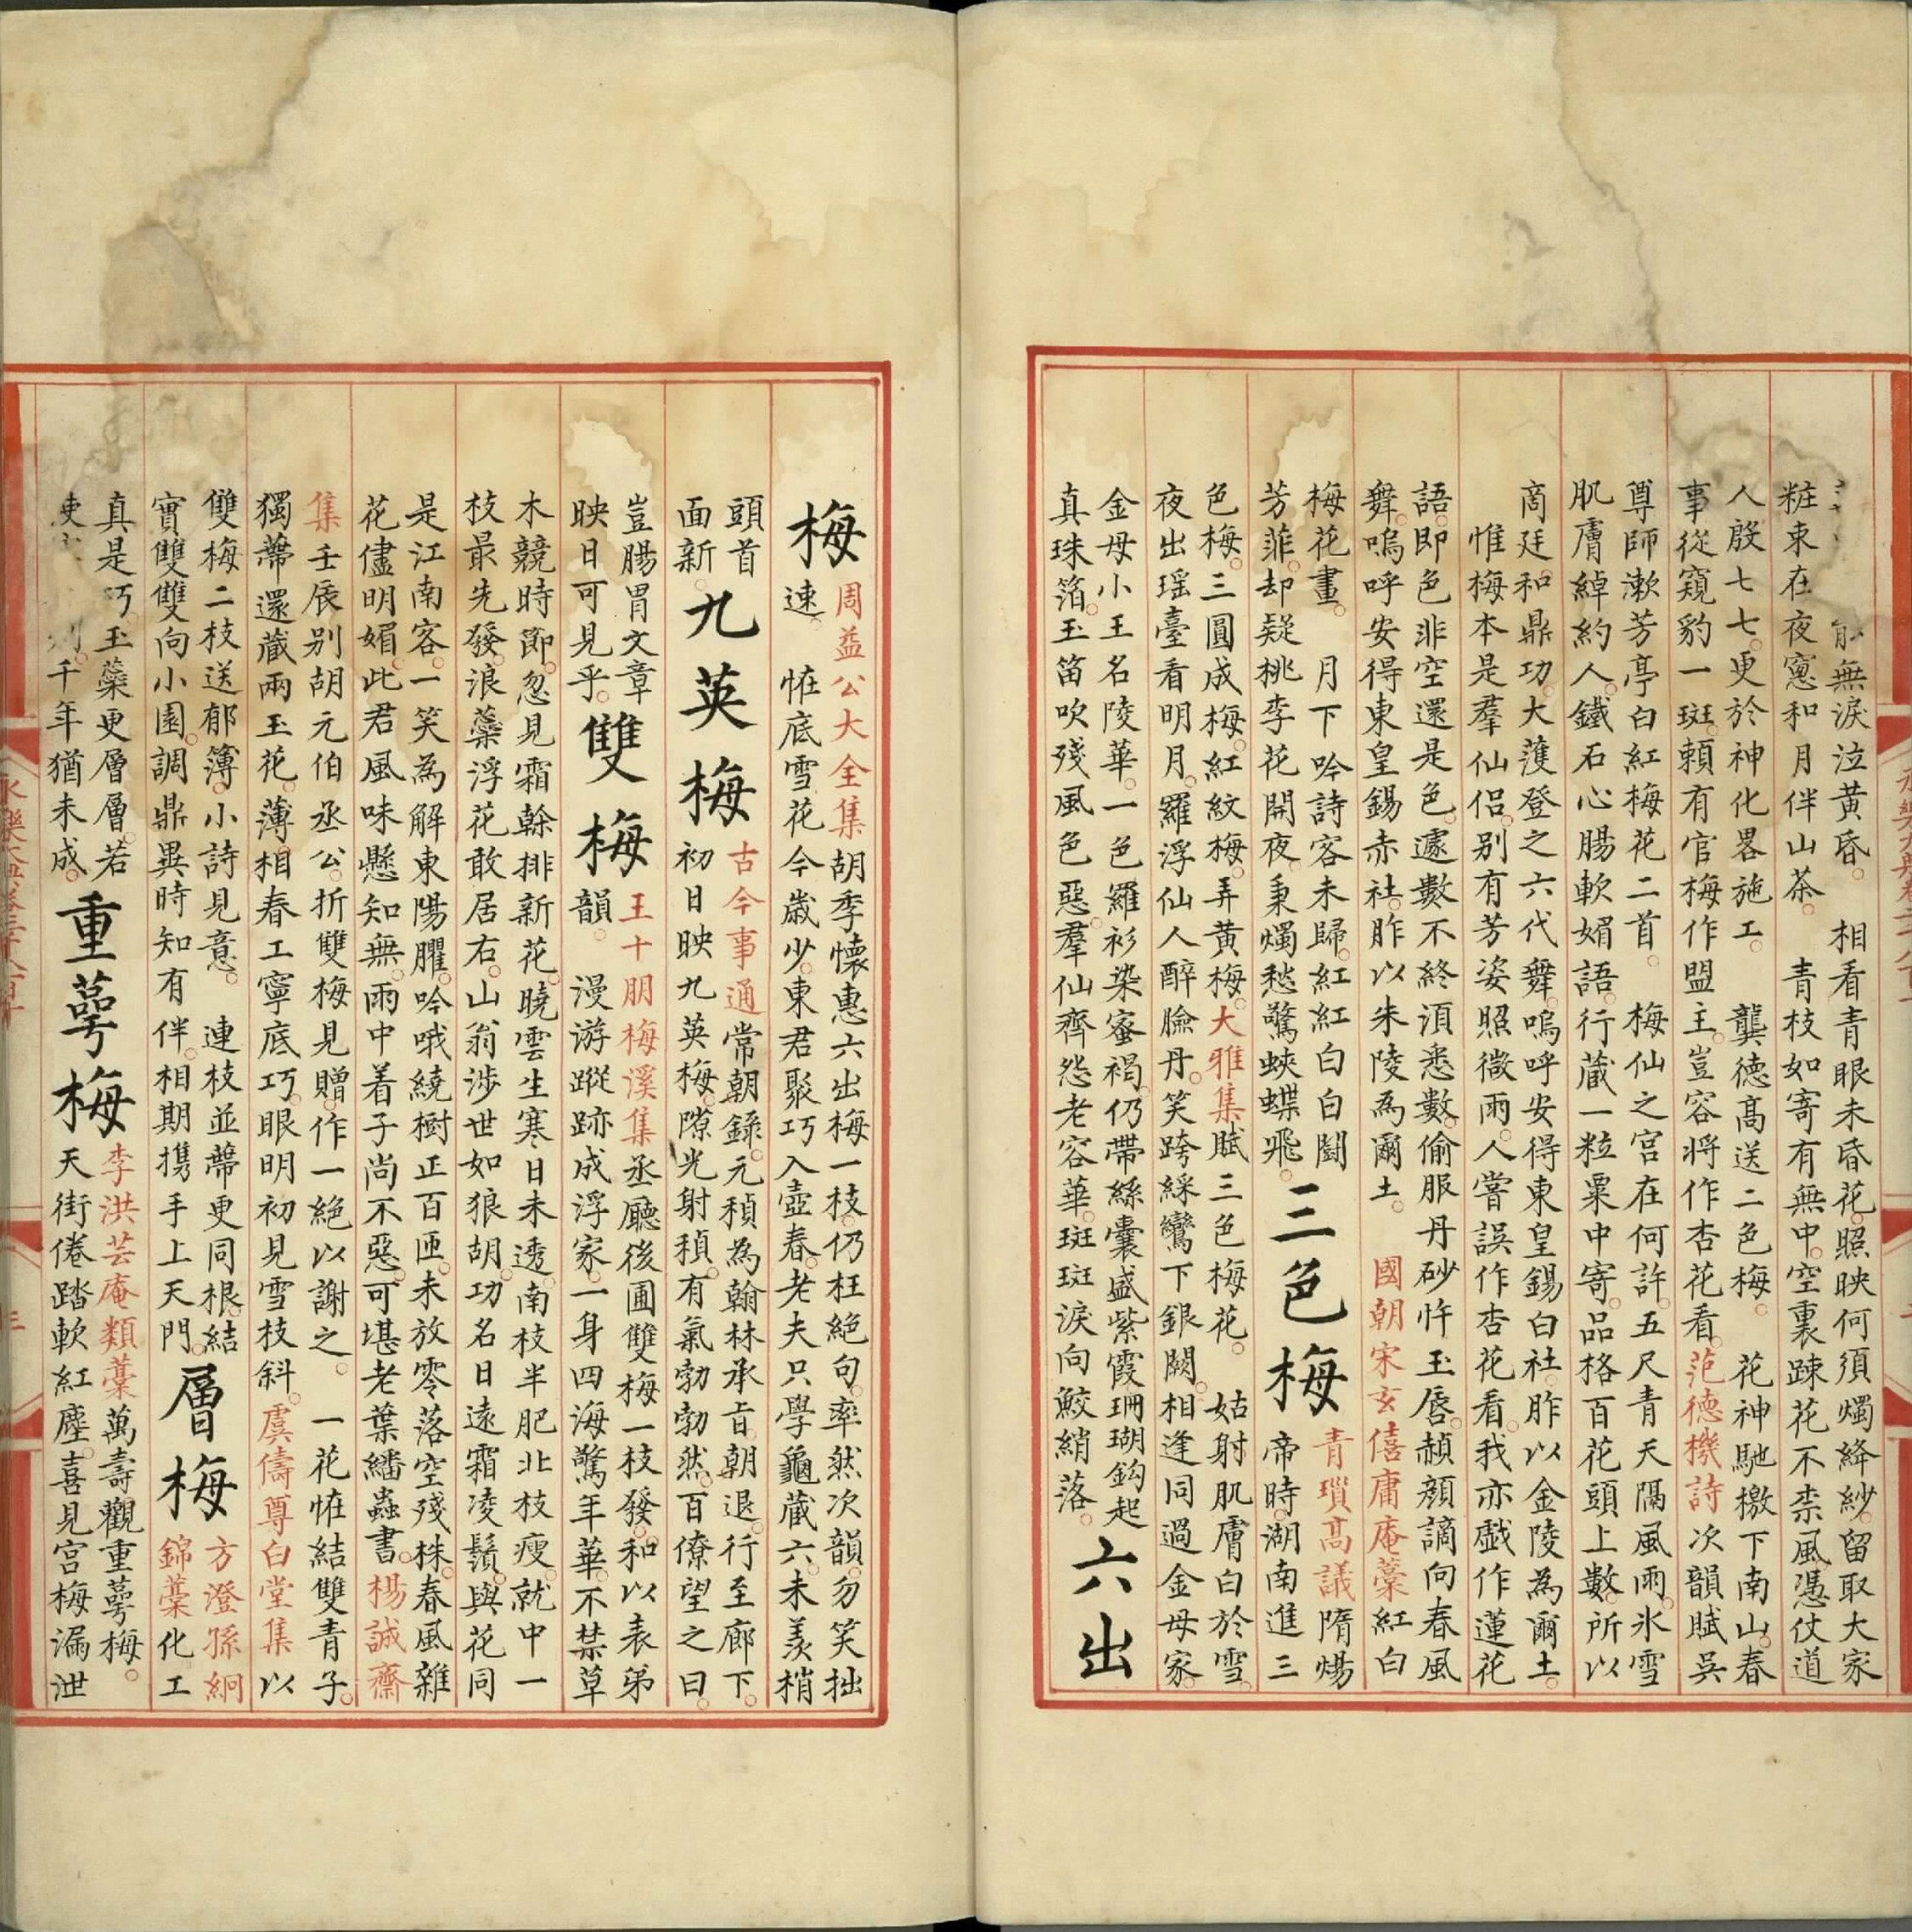 能無淚泣黃昏 相看青眼未昏花照映何須燭絳紗留取大家
粧束在夜窻和月伴山茶 青枝如寄有無中空裏踈花不柰風憑仗道
人殷七七更於神化畧施工 龔德高送二色梅 花神馳檄下南山春
事從窺豹一斑頼有官梅作盟主豈容將作杏花看范德機詩次韻賦吳
尊師漱芳亭白紅梅花二首 梅仙之宮在何許五尺青天隔風雨氷雪
肌膚綽約人鐵石心腸軟媚語行蔵一粒粟中寄品格百花頭上數所以
商廷和鼎功大護登之六代舞嗚呼安得東皇錫白社胙以金陵為爾土
惟梅本是羣仙侣别有芳姿照微雨人嘗誤作杏花看我亦戲作蓮花
語即色非空還是色遽數不終湏悉數偷服丹砂忤玉唇赬顏謫向春風
舞嗚呼安得東皇錫赤社胙以朱陵為爾土 國朝宋玄僖庸庵藁紅白
梅花畫 月下吟詩客未歸紅紅白白鬭
芳菲却疑桃李花開夜秉燭愁驚蛺蝶飛
三色梅
青瑣高議隋煬
帝時湖南進三
色梅三圓成梅紅紋梅弄黃梅大雅集賦三色梅花 姑射肌膚白於雪
夜出瑶臺看明月羅浮仙人醉臉丹笑跨綵鸞下銀闕相逢同過金母家
金母小王名陵華一色羅衫染蜜褐仍帶絲囊盛紫霞珊瑚鈎起
真珠箔玉笛吹殘風色惡羣仙齊怨老容華斑斑淚向鮫綃落
六出
梅
周益公大全集胡季懷惠六出梅一枝仍枉絶句率然次韻勿笑拙
速 恠底雪花今歲少東君聚巧入壺春老夫只學龜蔵六未羡梢
頭首
面新
九英梅
古今事通常朝錄元稹為翰林承旨朝退行至廊下
初日映九英梅隙光射稹有氣勃勃然百僚望之曰
豈腸胃文章
映日可見乎
雙梅
王十朋梅溪集丞廳後圃雙梅一枝發和以表弟
韻 漫游蹤跡成浮家一身四海驚年華不禁草
木競時節忽見霜榦排新花曉雲生寒日未透南枝半肥北枝瘦就中一
枝最先發浪蘂浮花敢居右山翁涉世如狼胡功名日遠霜凌鬚與花同
是江南客一笑為解東陽臞吟哦繞樹正百匝未放零落空殘株春風雜
花儘明媚此君風味懸知無雨中着子尚不惡可堪老葉繙蟲書楊誠齋
集壬辰别胡元伯丞公折雙梅見贈作一絶以謝之 一花恠結雙青子
獨蔕還藏兩玉花薄相春工寧底巧眼明初見雪枝斜虞儔尊白堂集以
雙梅二枝送郁簿小詩見意 連枝並蔕更同根結
實雙雙向小園調鼎異時知有伴相期携手上天門
層梅
方澄孫絅
錦藁化工
真是巧玉蘂更層層若
使 别千年猶未成
重萼梅
李洪芸庵類藁萬壽觀重萼梅
天街倦踏軟紅塵喜見宮梅漏泄